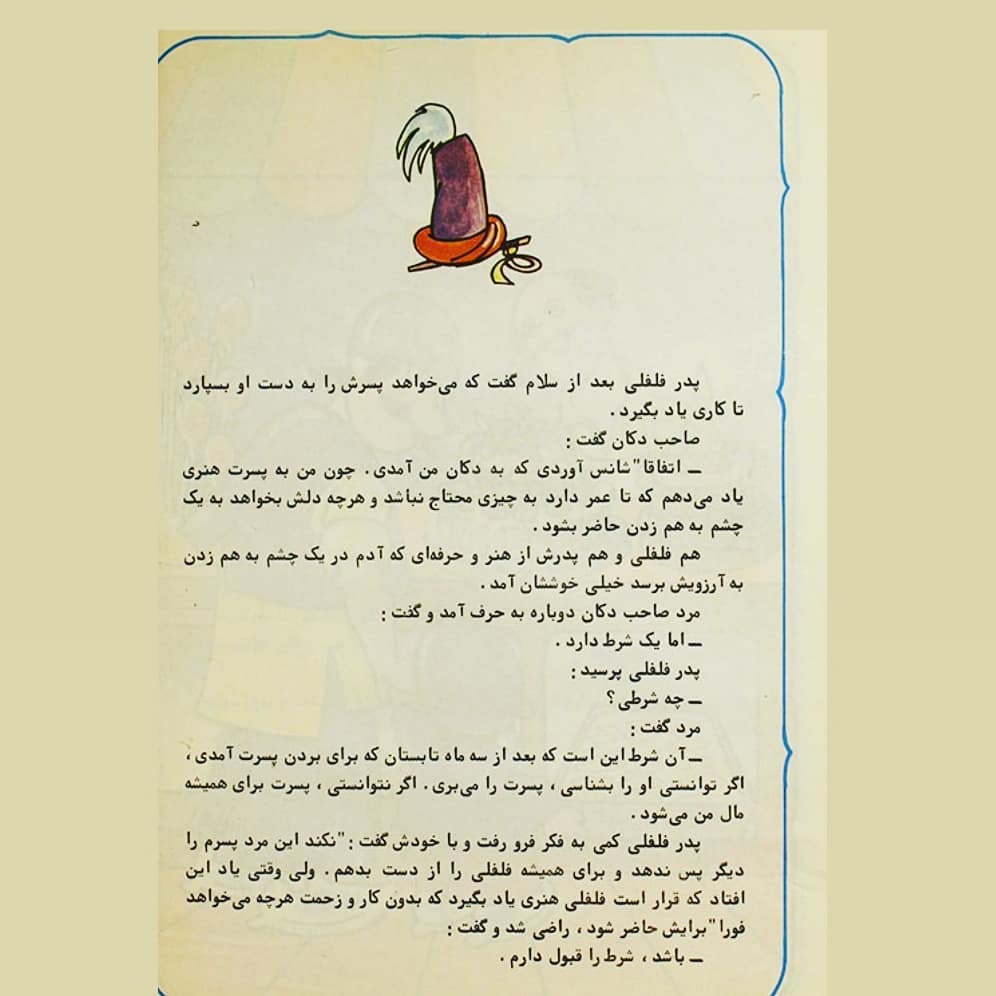 پدر فلفلی بعد از سلام گفت که می‌خواهد پسرش را به دست او بسپارد
تا کاری یاد بگیرد .
صاحب دکان گفت :
ــ اتفاقا"شانس آوردی که به دکان من آمدی . چون من به پسرت هنری
یاد می‌دهم که تا عمر دارد به چیزی محتاج نباشد و هرچه دلش بخواهد به یک
چشم به هم زدن حاضر بشود .
هم فلفلی و هم پدرش از هنر و حرفه‌ای که آدم در یک چشم به هم زدن
به آرزویش برسد خیلی خوششان آمد .
مرد صاحب دکان دوباره به حرف آمد و گفت :
ــ اما یک شرط دارد .
پدر فلفلی پرسید :
ــ چه شرطی ؟
مرد گفت :
ــ آن شرط این است که بعد از سه ماه تابستان که برای بردن پسرت آمدی ،
اگر توانستی او را بشناسی ، پسرت را می‌بری . اگر نتوانستی ، پسرت برای همیشه
مال من می‌شود .
پدر فلفلی کمی به فکر فرو رفت و با خودش گفت : "نکند این مرد پسرم را
دیگر پس ندهد و برای همیشه فلفلی را از دست بدهم . ولی وقتی یاد این
افتاد که قرار است فلفلی هنری یاد بگیرد که بدون کار و زحمت هرچه می‌خواهد
فورا"برایش حاضر شود ، راضی شد و گفت :
ــ باشد ، شرط را قبول دارم .